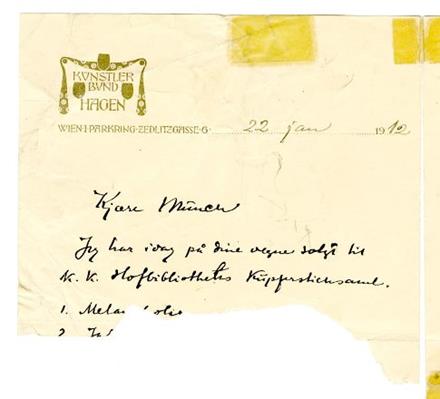 KÜNSTLER
BUND
HAGEN
WIEN·I·PARKRING·ZEDLITZGASSE·6· 22 jan 1912
Kjære Munch
Jeg har idag på dine vegne solgt til
K. K. Hofbibliothekets Kupferstichsaml.
1.
2.